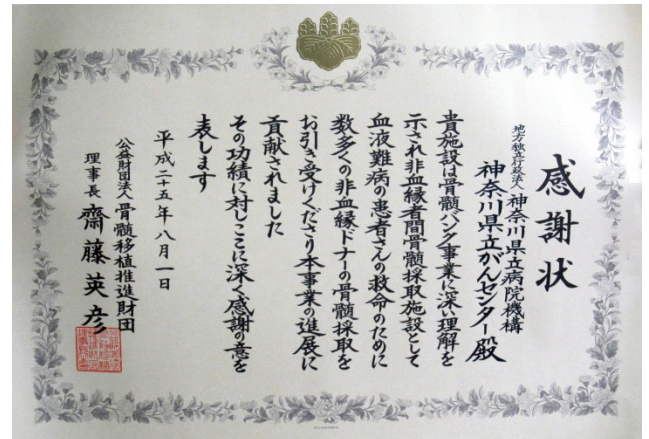 感謝状
地方独立行政法人神奈川県立病院機構
神奈川県立がんセンター殿
貴施設は骨髄バンク事業に深い理解を
示され非血縁者間骨髄採取施設として
血液難病の患者さんの救命のために
数多くの非血縁ドナーの骨髄採取を
お引き受けくださり本事業の進展に
貢献されました
その功績に対しここに深く感謝の意を
表します
平成二十五年八月一日
公益財団法人骨髄移植推進財団
理事長 齋藤英彦